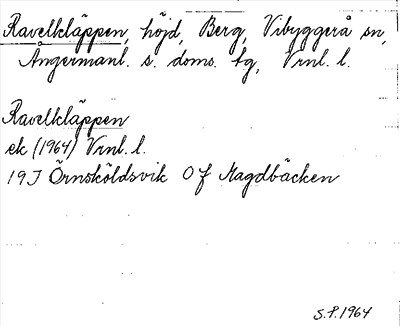 Ravelkläppen, höjd, Berg, Vibyggerå sn,
Ångermanl. s. doms. tg, Vrnl. l.
Ravelkläppen
ek (1964) Vrnl. l.
19J Örnsköldsvik Of Magdbäcken
S.P. 1964